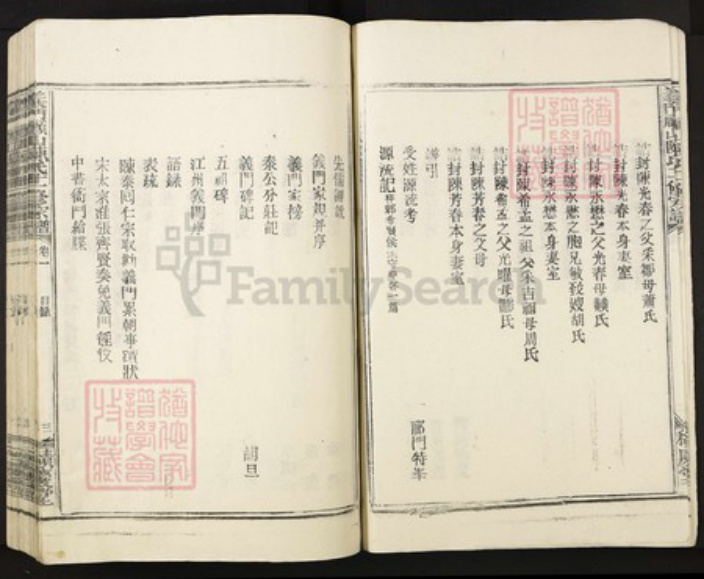 誥封陳光春之父采鄒母蕭氏
誥封陳光春本身妻室
誥封陳永懋之父光春母戴氏
誥封陳永懋之胞兄敏致嫂胡氏
誥封陳永懋本身妻室
誥封陳希孟之祖父采吉祖母周氏
誥封陳希孟之父光曜母彭氏
誥封陳芳春之父母
誥封陳芳春本身妻室
譜引
受姓源流考
源流記
先儒譜說
義門家規并序
義門家榜
秦公分莊記
義門碑記 胡旦
五祖碑
江州義門序
語錄
表疏
陳泰同仁宗取新義門累朝事蹟狀
宋太宗准張齊賢奏免義門徭役
中書衙門給牒
卷一
目錄
三
猶他家譜學會特藏
猶他家譜學會特藏
FamilySearch